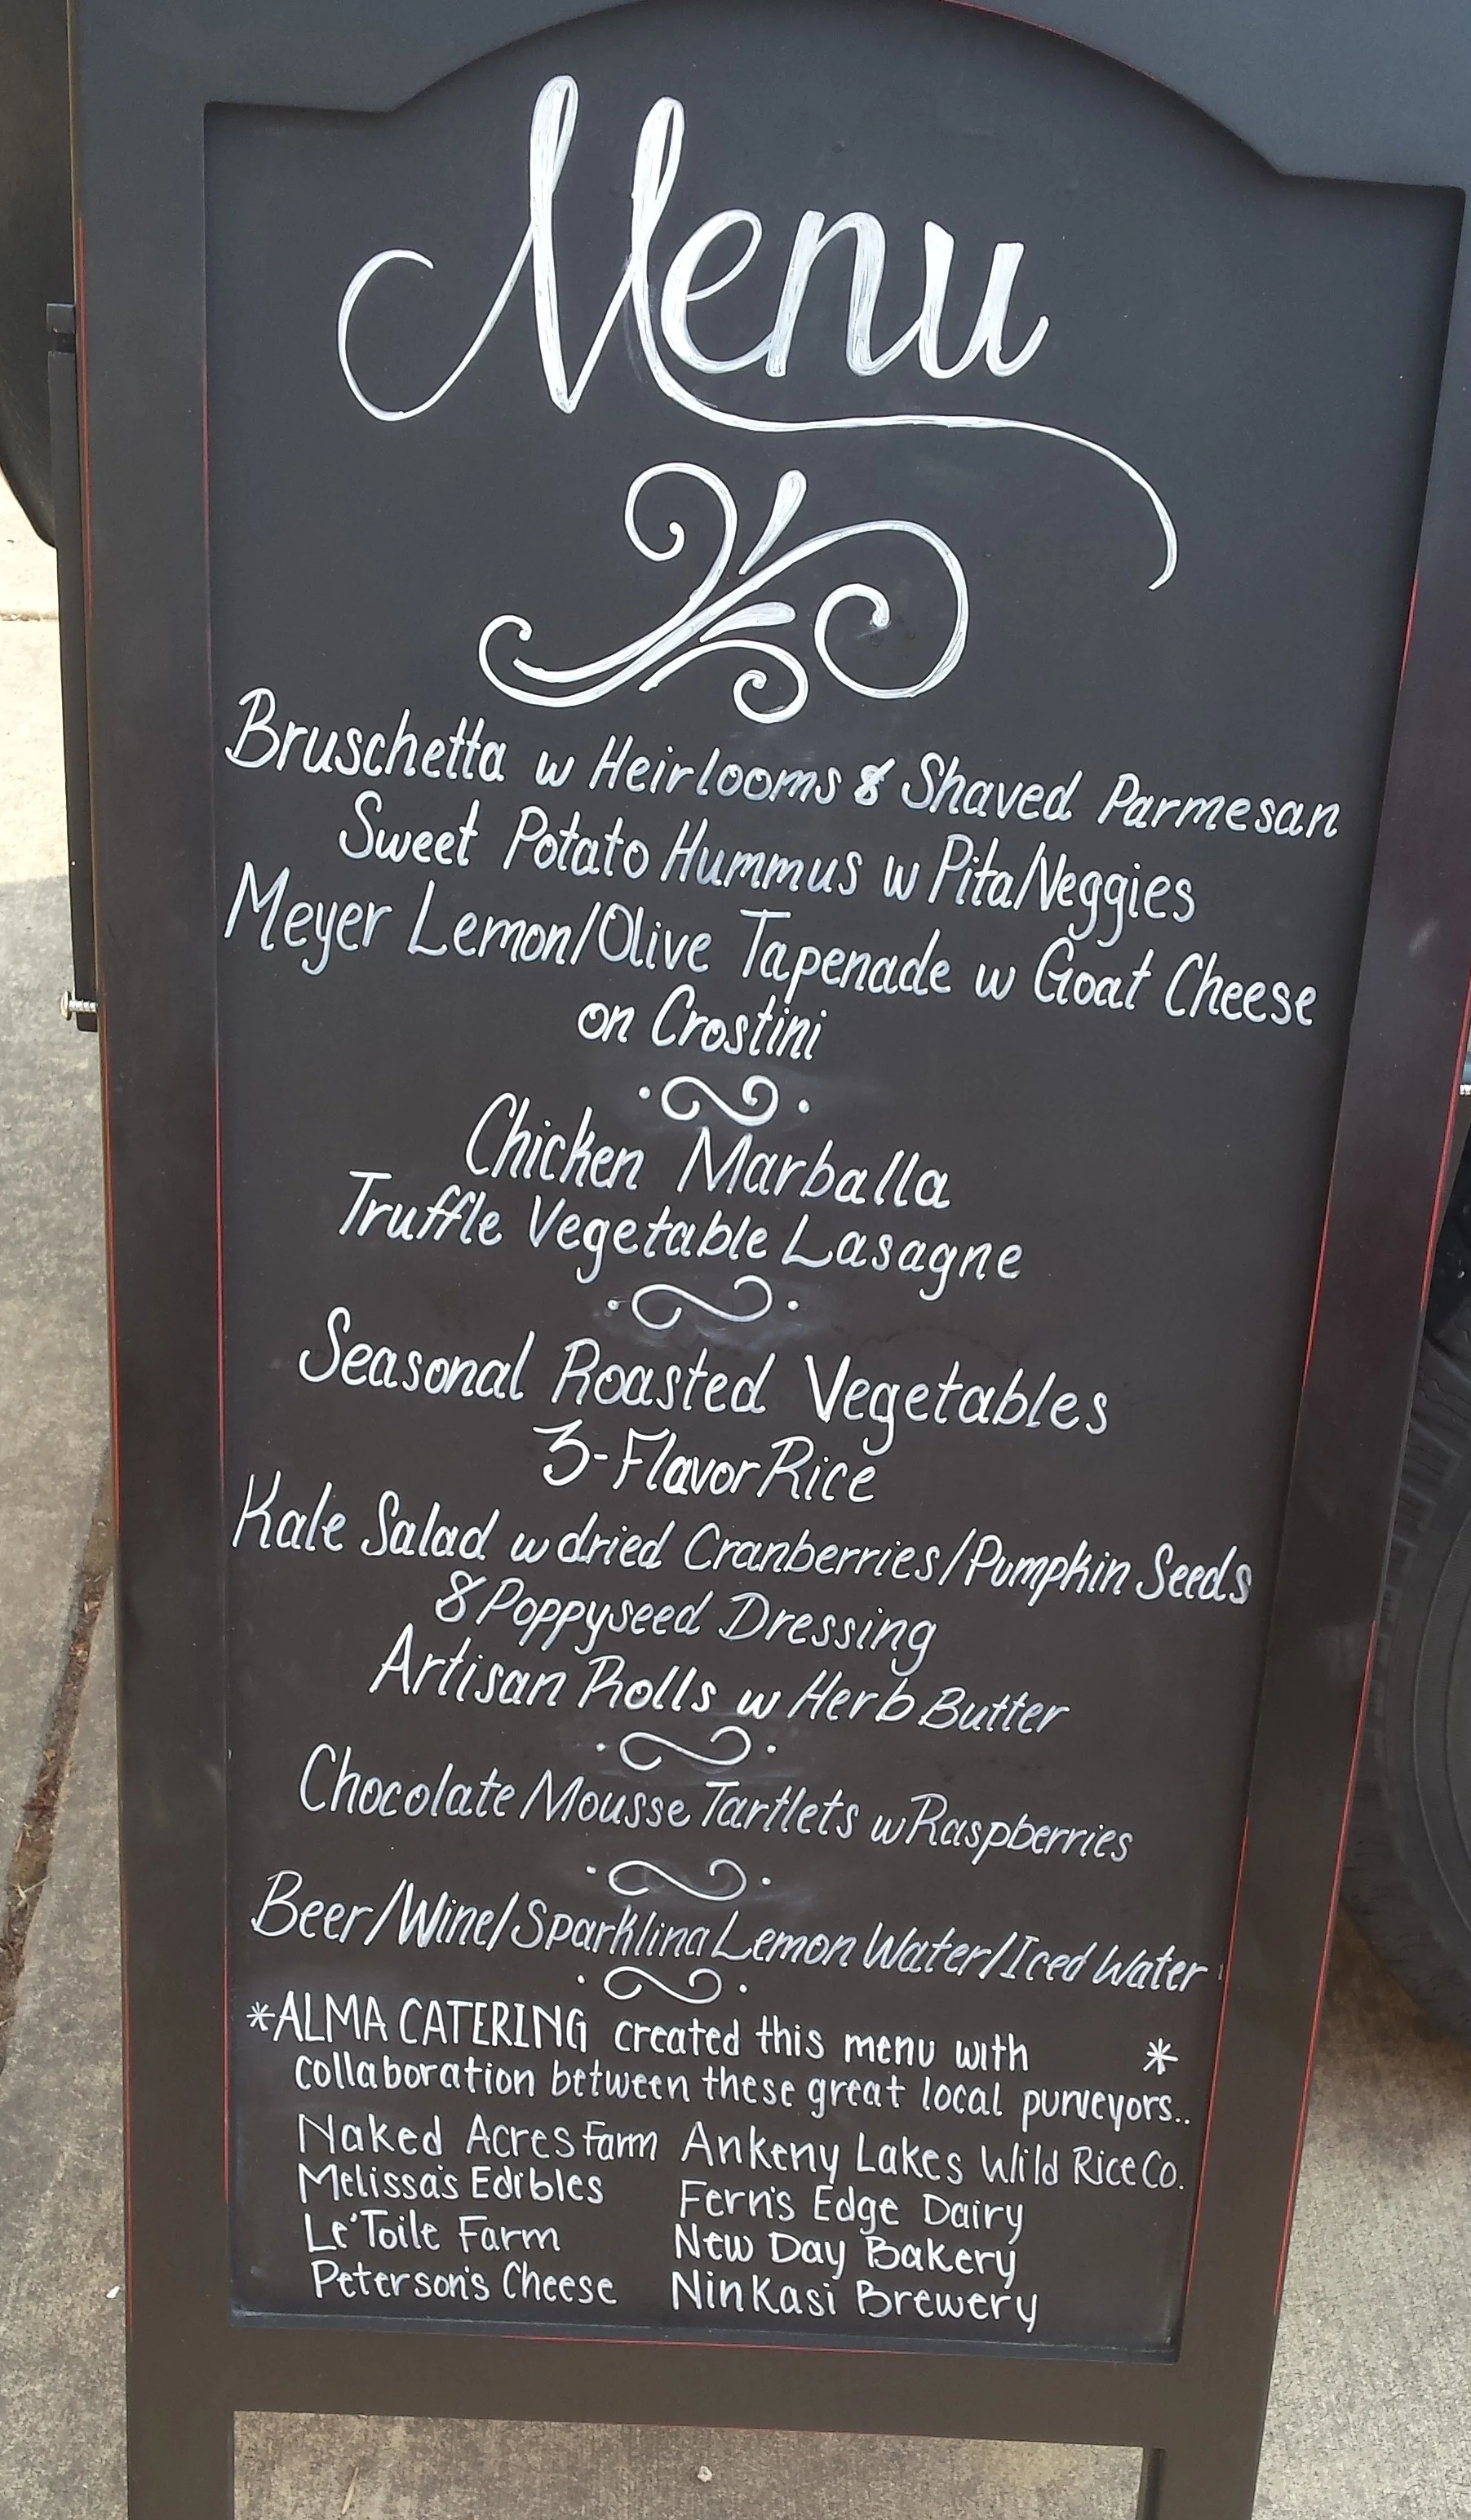 Menu
Bruschetta w Heirlooms & Shaved Parmesan
Sweet Potato Hummus w Pita/Veggies
Meyer Lemon/Olive Tapenade w Goat Cheese
on Crostini
Chicken Marballa
Truffle Vegetable Lasagne
Seasonal Roasted Vegetables
3-Flavor Rice
Kale Salad w dried Cranberries/Pumpkin Seeds
& Poppyseed Dressing
Artisan Rolls w Herb Butter
Chocolate Mousse Tartlets w Raspberries
Beer/Wine/Sparkling Lemon Water/Iced Water
*ALMA CATERING created this menu with *
collaboration between these great local purveyors..
Naked Acres Farm Ankeny Lakes Wild Rice Co.
Melissa's Edibles Fern's Edge Dairy
Le'Toile Farm New Day Bakery
Peterson's Cheese Ninkasi Brewery